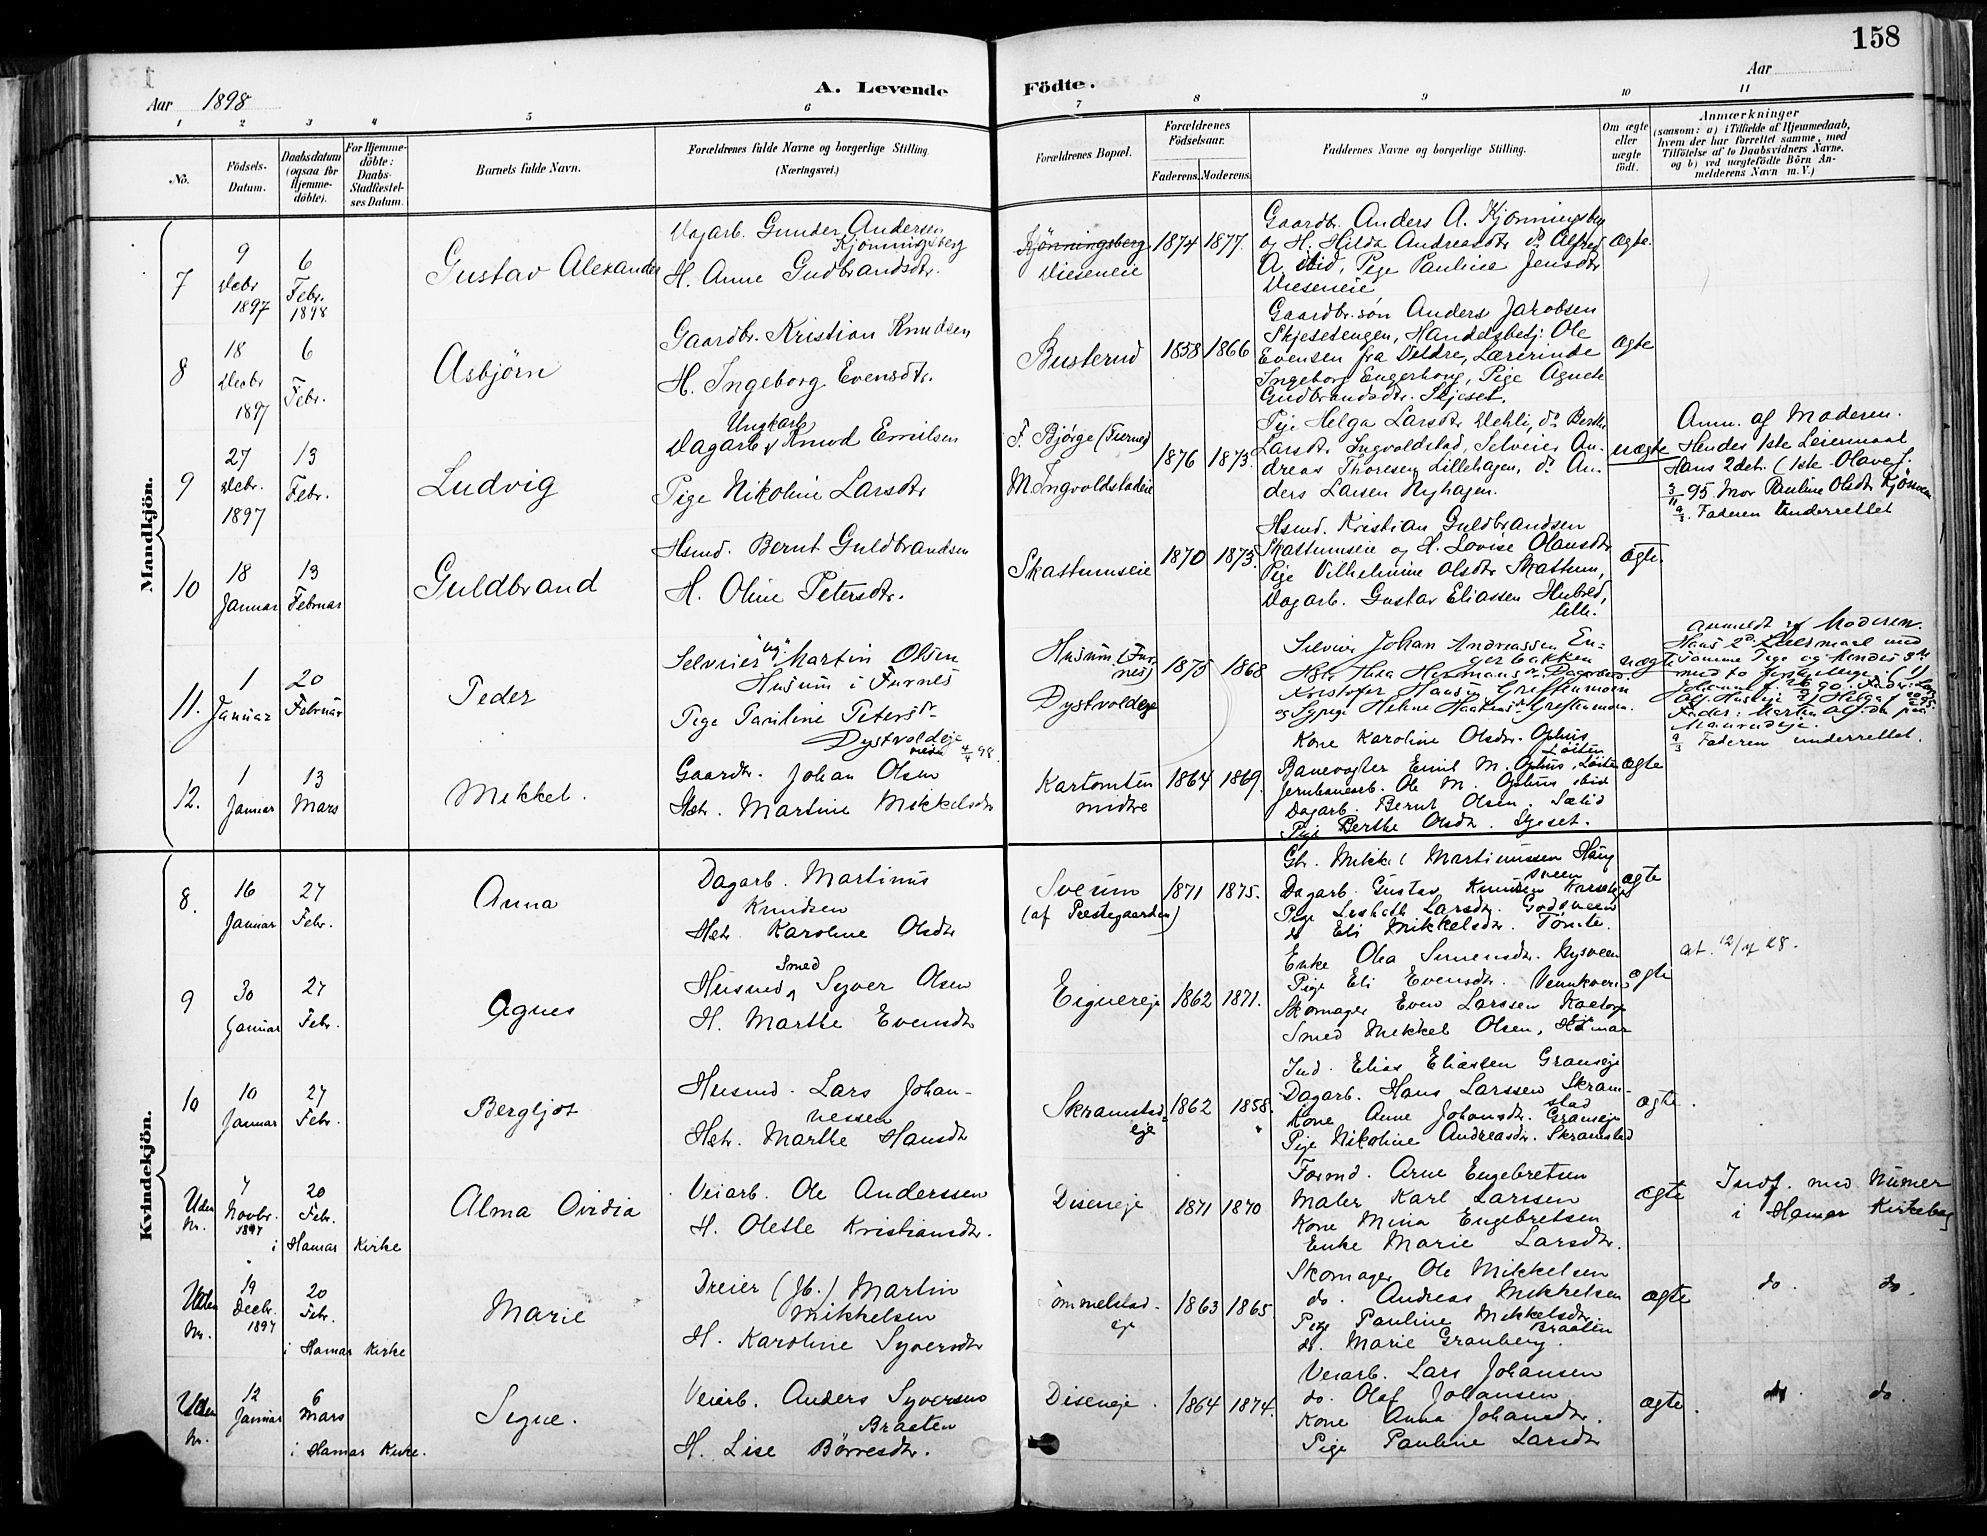 158
Aar 1898
A. Levende Födte.
Aar
1 2 3 4 5 6 7 8 9 10 11
No.
Födsels-Datum.
Daabsdatum (ogsaa for Hjemme-döbte).
For Hjemme-döbte: Daabs-Stadfæstel-ses Datum.
Barnets fulde Navn.
Forældrenes fulde Navne og borgerlige Stilling. (Næringsvei.)
Forældrenes Bopæl.
Forældrenes Födselsaar.
Faderens. Moderens.
Faddernes Navne og borgerlige Stilling.
Om ægte eller uægte födt.
Anmærkninger
(saasom: a) i Tilfælde af Hjemmedaab,
hvem der har forrettet samme, med
Tilföielse af to Daabsvidners Navne,
og b) ved uægtefödte Börn An-
melderens Navn m. V.)
Mandkjön.
7
9 Decbr 1897
6 Febr. 1898
Gustav Alexander
Dagarb. Gunder Andersen
Kjönningsberg
H. Anne Gudbrandsdtr.
Kjönningsberg
Dieseneie
1874 1877.
Gaardbr. Anders A. Kjönningsberg
og H. Hilda Andreasdtr do Alfred
A. ibid, Pige Pauline Jensdtr
Dieseneie
Ægte.
8
18 Decbr 1897
6 Febr.
Asbjörn
Gaardbr. Kristian Knudsen
H. Ingeborg Evensdtr.
Busterud
1858 1866
Gaardbr.sön Anders Jakobsen
Skjesetengen, Handelsbetj. Ole
Evensen fra Veldre, Lærerinde
Ingeborg Engerhong, Pige Agnete
Gudbrandsdtr. Skjeset.
Ægte
9
27 Decbr. 1897
13 Febr.
Ludvig
Ungkarl
Dagarb. Knud Emilsen
Pige Nikoline Larsdtr
F. Bjørge (Furnes)
M. Ingvoldstadeie
1876 1873.
Pige Helga Larsdtr Dehli, do Berthe
Larsdtr Ingvoldstad, Selveier An-
dreas Thoresen Lillehagen, do An-
ders Larsen Nyhagen.
uægte
Anm. af Moderen.
Hendes 1ste Leiermaal
Hans 2det. (1ste Olave f.
3/11 95 Mor Pauline Olsdtr
9/3. Faderen underrettet
10
18 Januar
13 Februar
Guldbrand
Hsmd. Bernt Guldbrandsen
H. Oline Petersdtr.
Skattumseie
1870 1873.
Hsmd. Kristian Guldbrandsen
Skattumseie og H. Lovise Olausdtr
Pige Vilhelmine Olsdtr Skattum,
Dagarb. Gustav Eliassen Hubred,
lille.
Ægte.
11.
1 Januar
20 Februar
Peder
Selveier Martin Olsen
Husum i Furnes
Pige Pauline Petersdr
Dystvoldeje
Husum (Fur-
nes)
Dystvoldeje
1875 1868
Selveier Johan Andreassen En-
gerbakken
Kristofer Hansen Greftenmoen
og Sypige Helene Greftenmoen.
uægte
Anmeldt af Moderen.
Hans 2d. Leiermaal med
samme Pige og hendes 3die
9/3 Faderen underrettet.
12.
1 Januar
13 Mars
Mekkel.
Gaardbr. Johan Olsen
Hstr. Martine Mikkelsdtr
Kartomten
midtre
1864 1869.
Kone Karoline Olsdtr. Ophus
Löiten
Banevogter Emil M. Ophus, Löiten
Jernbanearb. Ole M. Ophus ibid
Dagarb. Bernt Olsen. Sælid
Pige Berthe Olsdtr. Sjeset.
ægte
Kvindekjön.
8.
16 Januar
27 Febr.
Anna
Dagarb. Martinus
Knudsen
Hstr. Karoline Olsdtr
Sveum
(af Prestegaarden)
1871 1875.
Gbr. Mikkel Martinussen Haug
sveen
Dagarb. Gustav Knudsen
Pige Lisbeth Larsdtr. Godsveen
do Eli Mikkelsdtr. Tomte.
ægte
9
30 Januar
27 Febr.
Agnes
Smed
Husmd Syver Olsen
H. Marthe Evensdtr
Eignereje
1862 1871.
Enke Olea Simensdtr. Nysveen
Pige Eli Evensdtr.
Skomager Even Larssen
Smed Mikkel Olsen, Hamar
ægte
at. 12/4 28.
10
10 Januar
27 Febr.
Bergljot
Husmd. Lars Johan-
nessen
Hstr. Marthe Hansdtr
Skramstad-
eje
1862 1858.
Ind. Elias Eliassen Granseje
Dagarb. Hans Larssen Skram-
stad
Kone Anne Johansdtr. Granseje
Pige Nikoline Andreasdtr. Skramstad
ægte.
Uden Nr.
7 Novbr. 1897
20 Febr.
i Hamar Kirke
Alma Ovidia
Veiarb. Ole Anderssen
H. Olette Kristiansdtr.
Diseneje
1871 1870
Formd. Arne Engebretsen
Maler Karl Larssen
Kone Mina Engebretsen
Enke Marie Larsdtr.
ægte
Indf. med Numer
i Hamar Kirkebog
Uden Nr.
19 Decbr. 1897
20 Febr.
i Hamar Kirke
Marie
Dreier (Jb.) Martin
Mikkelsen
H. Karoline Syversdtr
Tommelstad-
eje
1863 1865
Skomager Ole Mikkelsen
do. Andreas Mikkelsen
Pige Pauline Mikkelsdtr.
Braaten
do. Marie Granberg.
ægte
do. do.
Uden Nr.
12 Januar
6 Mars
i Hamar Kirke.
Signe.
Veiarb. Anders Syversen
Braaten
H. Lise Børresdtr.
Diseneje.
1864 1874.
Veiarb. Lars Johansen
do. Olaf Johansen
Kone Anna Johansdtr.
Pige Pauline Larsdtr
ægte.
do. do